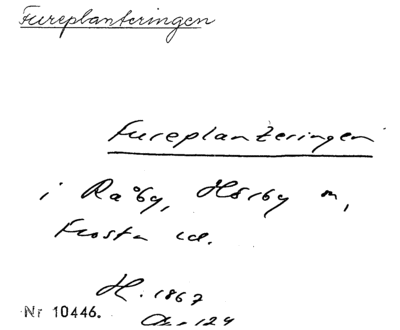 Fureplanteringen
Fureplanteringen
i Råby, Hörby m,
Frosta sd.
H. 1867
Nr 10446.
124